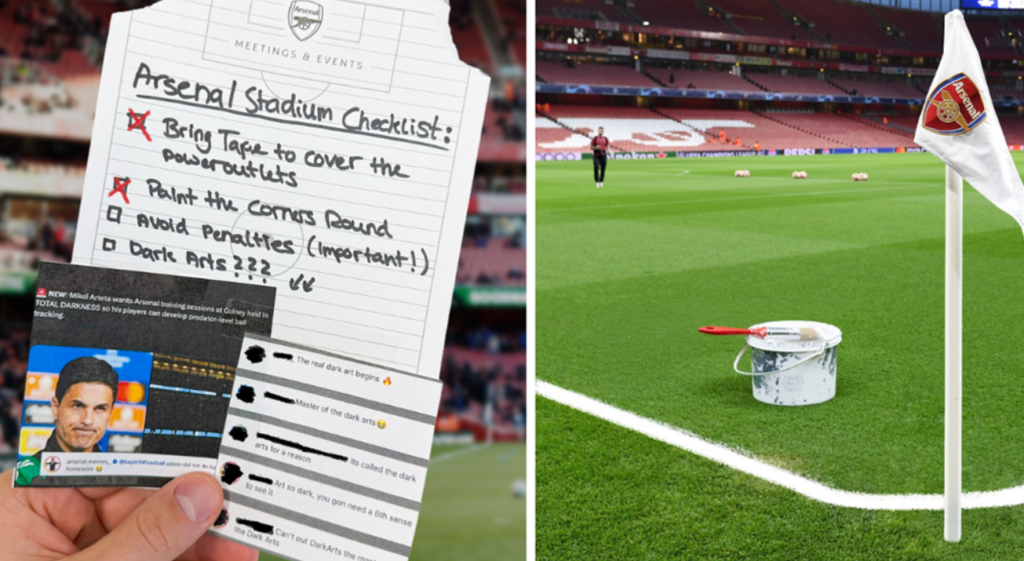 Arsenal
MEETINGS & EVENTS
Arsenal Stadium Checklist:
Bring Tape to cover the
poweroutlets
Paint the corners Round
Avoid Penalties (important!)
Dark Arts???
NEW: Mikel Arteta wants Arsenal training sessions at Colney held in
TOTAL DARKNESS so his players can develop predator-level ball
tracking.
arsenal.memes_ @bayer04fussball admin did not do
homework
The real dark art begins 🔥
Master of the dark arts
Its called the dark
arts for a reason
Art so dark, you gon need a 6th sense
to see it
Can't out DarkArts the
the Dark Arts
Arsenal
PEPSI